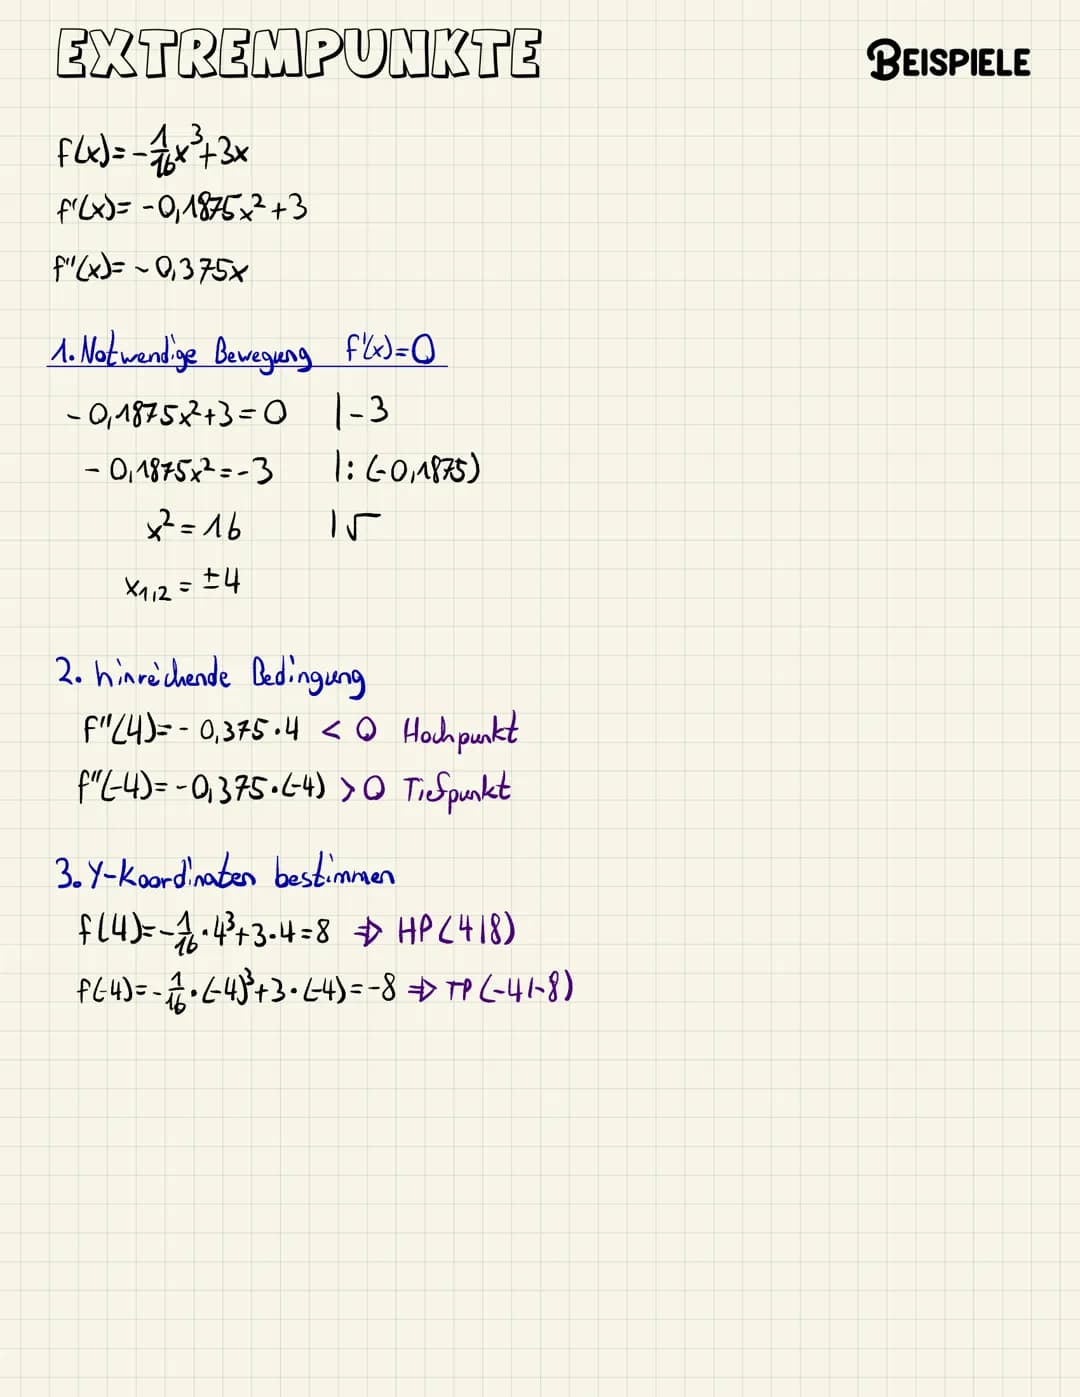 EXTREMPUNKTE
BEISPIELE
f(x)= -1/16x³+3x
f'(x)= -0,1875x²+3
f''(x)= -0,375x
1. Notwendige Bewegung f'(x)=0
-0,1875x²+3=0 |-3
-0,1875x²=-3 |:(-0,1875)
x²=16 |√
x1,2=±4
2. hinreichende Bedingung
f''(4)=-0,375·4 <0 Hochpunkt
f''(-4)=-0,375·(-4) >0 Tiefpunkt
3. Y-Koordinaten bestimmen
f(4)=-1/16·4³+3·4=8 ⇒ HP(4|8)
f(-4)=-1/16·(-4)³+3·(-4)=-8 ⇒ TP(-4|-8)